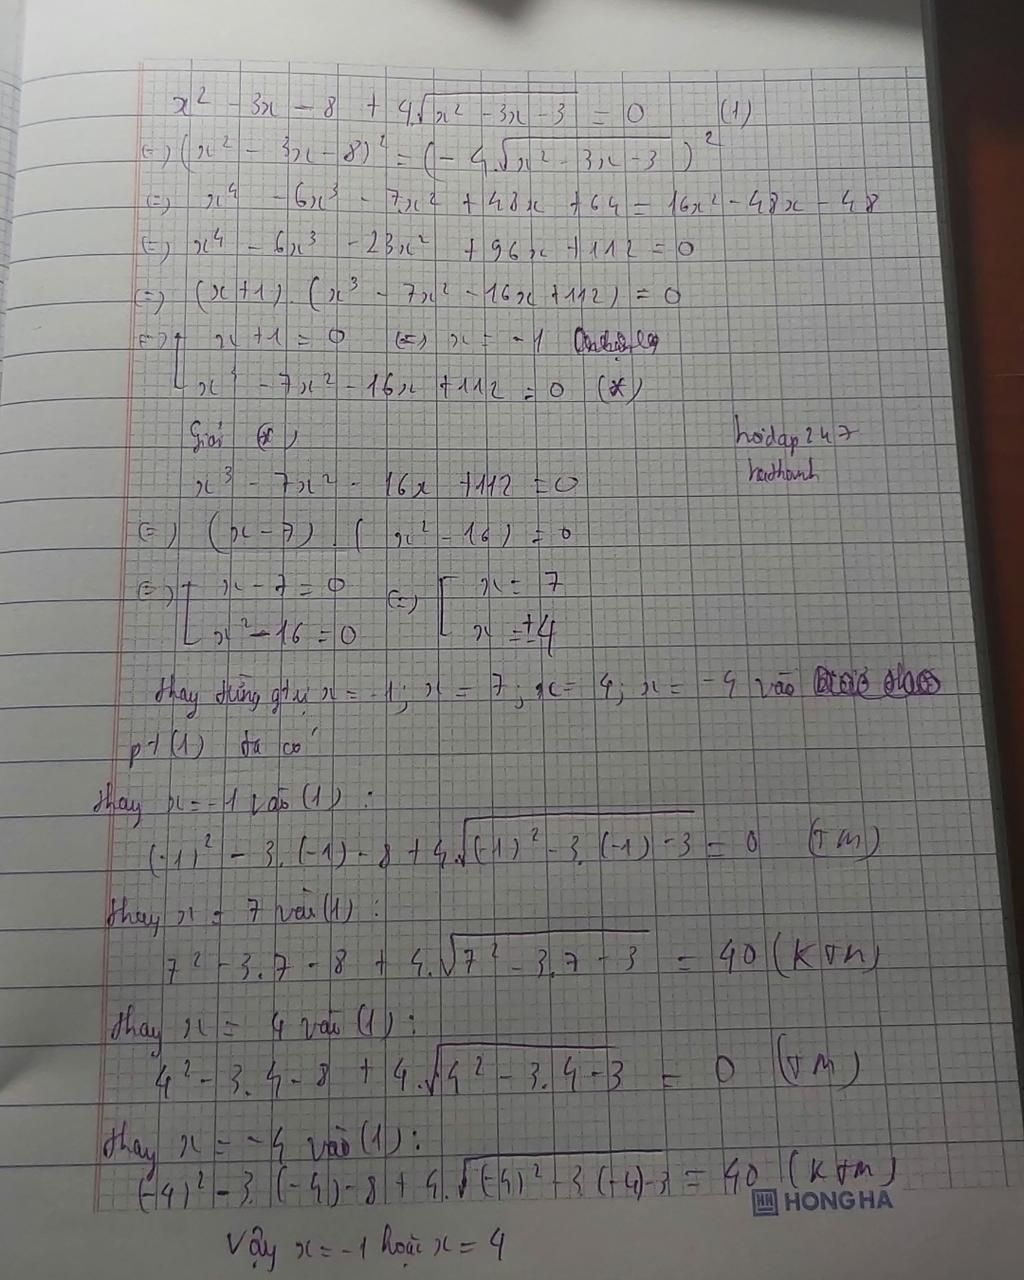 x² - 3x - 8 + 4.√(x² - 3x - 3) = 0 (1)
(=) (x² - 3x - 8)² = (- 4.√(x² - 3x - 3))²
(=) x⁴ - 6x³ - 7x² + 48x + 64 = 16x² - 48x - 48
(=) x⁴ - 6x³ - 23x² + 96x + 112 = 0
(=) (x+1).(x³ - 7x² - 16x + 112) = 0
(=) [ x + 1 = 0 (=) x = -1
x³ - 7x² - 16x + 112 = 0 (*)
Giải (*)
hoidap247
x³ - 7x² - 16x + 112 = 0
(=) (x - 7) . (x² - 16) = 0
(=) [ x - 7 = 0 (=) [ x = 7
x² - 16 = 0 x = ±4
thay từng gtrị x = -1; x = 7; x = 4; x = -4 vào
pt (1) ta có
thay x = -1 vào (1) :
(-1)² - 3.(-1) - 8 + 4.√((-1)² - 3.(-1) - 3) = 0 (tm)
thay x = 7 vào (1) :
7² - 3.7 - 8 + 4.√(7² - 3.7 - 3) = 40 (ktm)
thay x = 4 vào (1) :
4² - 3.4 - 8 + 4.√(4² - 3.4 - 3) = 0 (tm)
thay x = -4 vào (1) :
(-4)² - 3.(-4) - 8 + 4.√((-4)² - 3.(-4) - 3) = 40 (ktm)
HH HONG HA
Vậy x = -1 hoặc x = 4